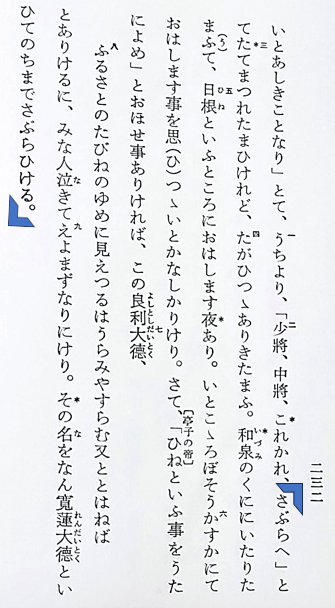 二三二
いとあしきことなり」とて、うちより、「少將、中將、これかれ、さぶらへ」と
一 二
てたてまつれたまひけれど、たがひつゝありきたまふ。和泉のくににいたりた
三 四 いづみ
まふて、日根といふところにおはします夜あり。いとこゝろぼそうかすかにて
(う) 五 ひね 六
おはします事を思(ひ)つゝいとかなしかりけり。さて、「ひねといふ事をうた
〔亭子の帝〕
によめ」とおほせ事ありければ、この良利大德、
七 よしとしだいとく
ふるさとのたびねのゆめに見えつるはうらみやすらむ又ととはねば
八
とありけるに、みな人泣きてえよまずなりにけり。その名をなん寬蓮大德とい
な 九 な れんだいとく
ひてのちまでさぶらひける。